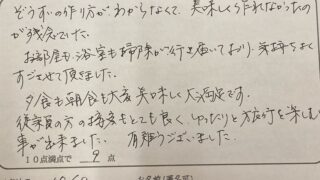 ぞうすいの作り方がわからなくて、美味しく作れなかったの
が残念でした。
お部屋も、浴室も掃除が行き届いており、気持ちよく
すごさせて頂きました。
夕食も朝食も大変美味しく大満足です。
従業員の方の接客もとても良く、ゆったりと旅行を楽しむ
事が出来ました。有難うございました。
10点満点で 9 点